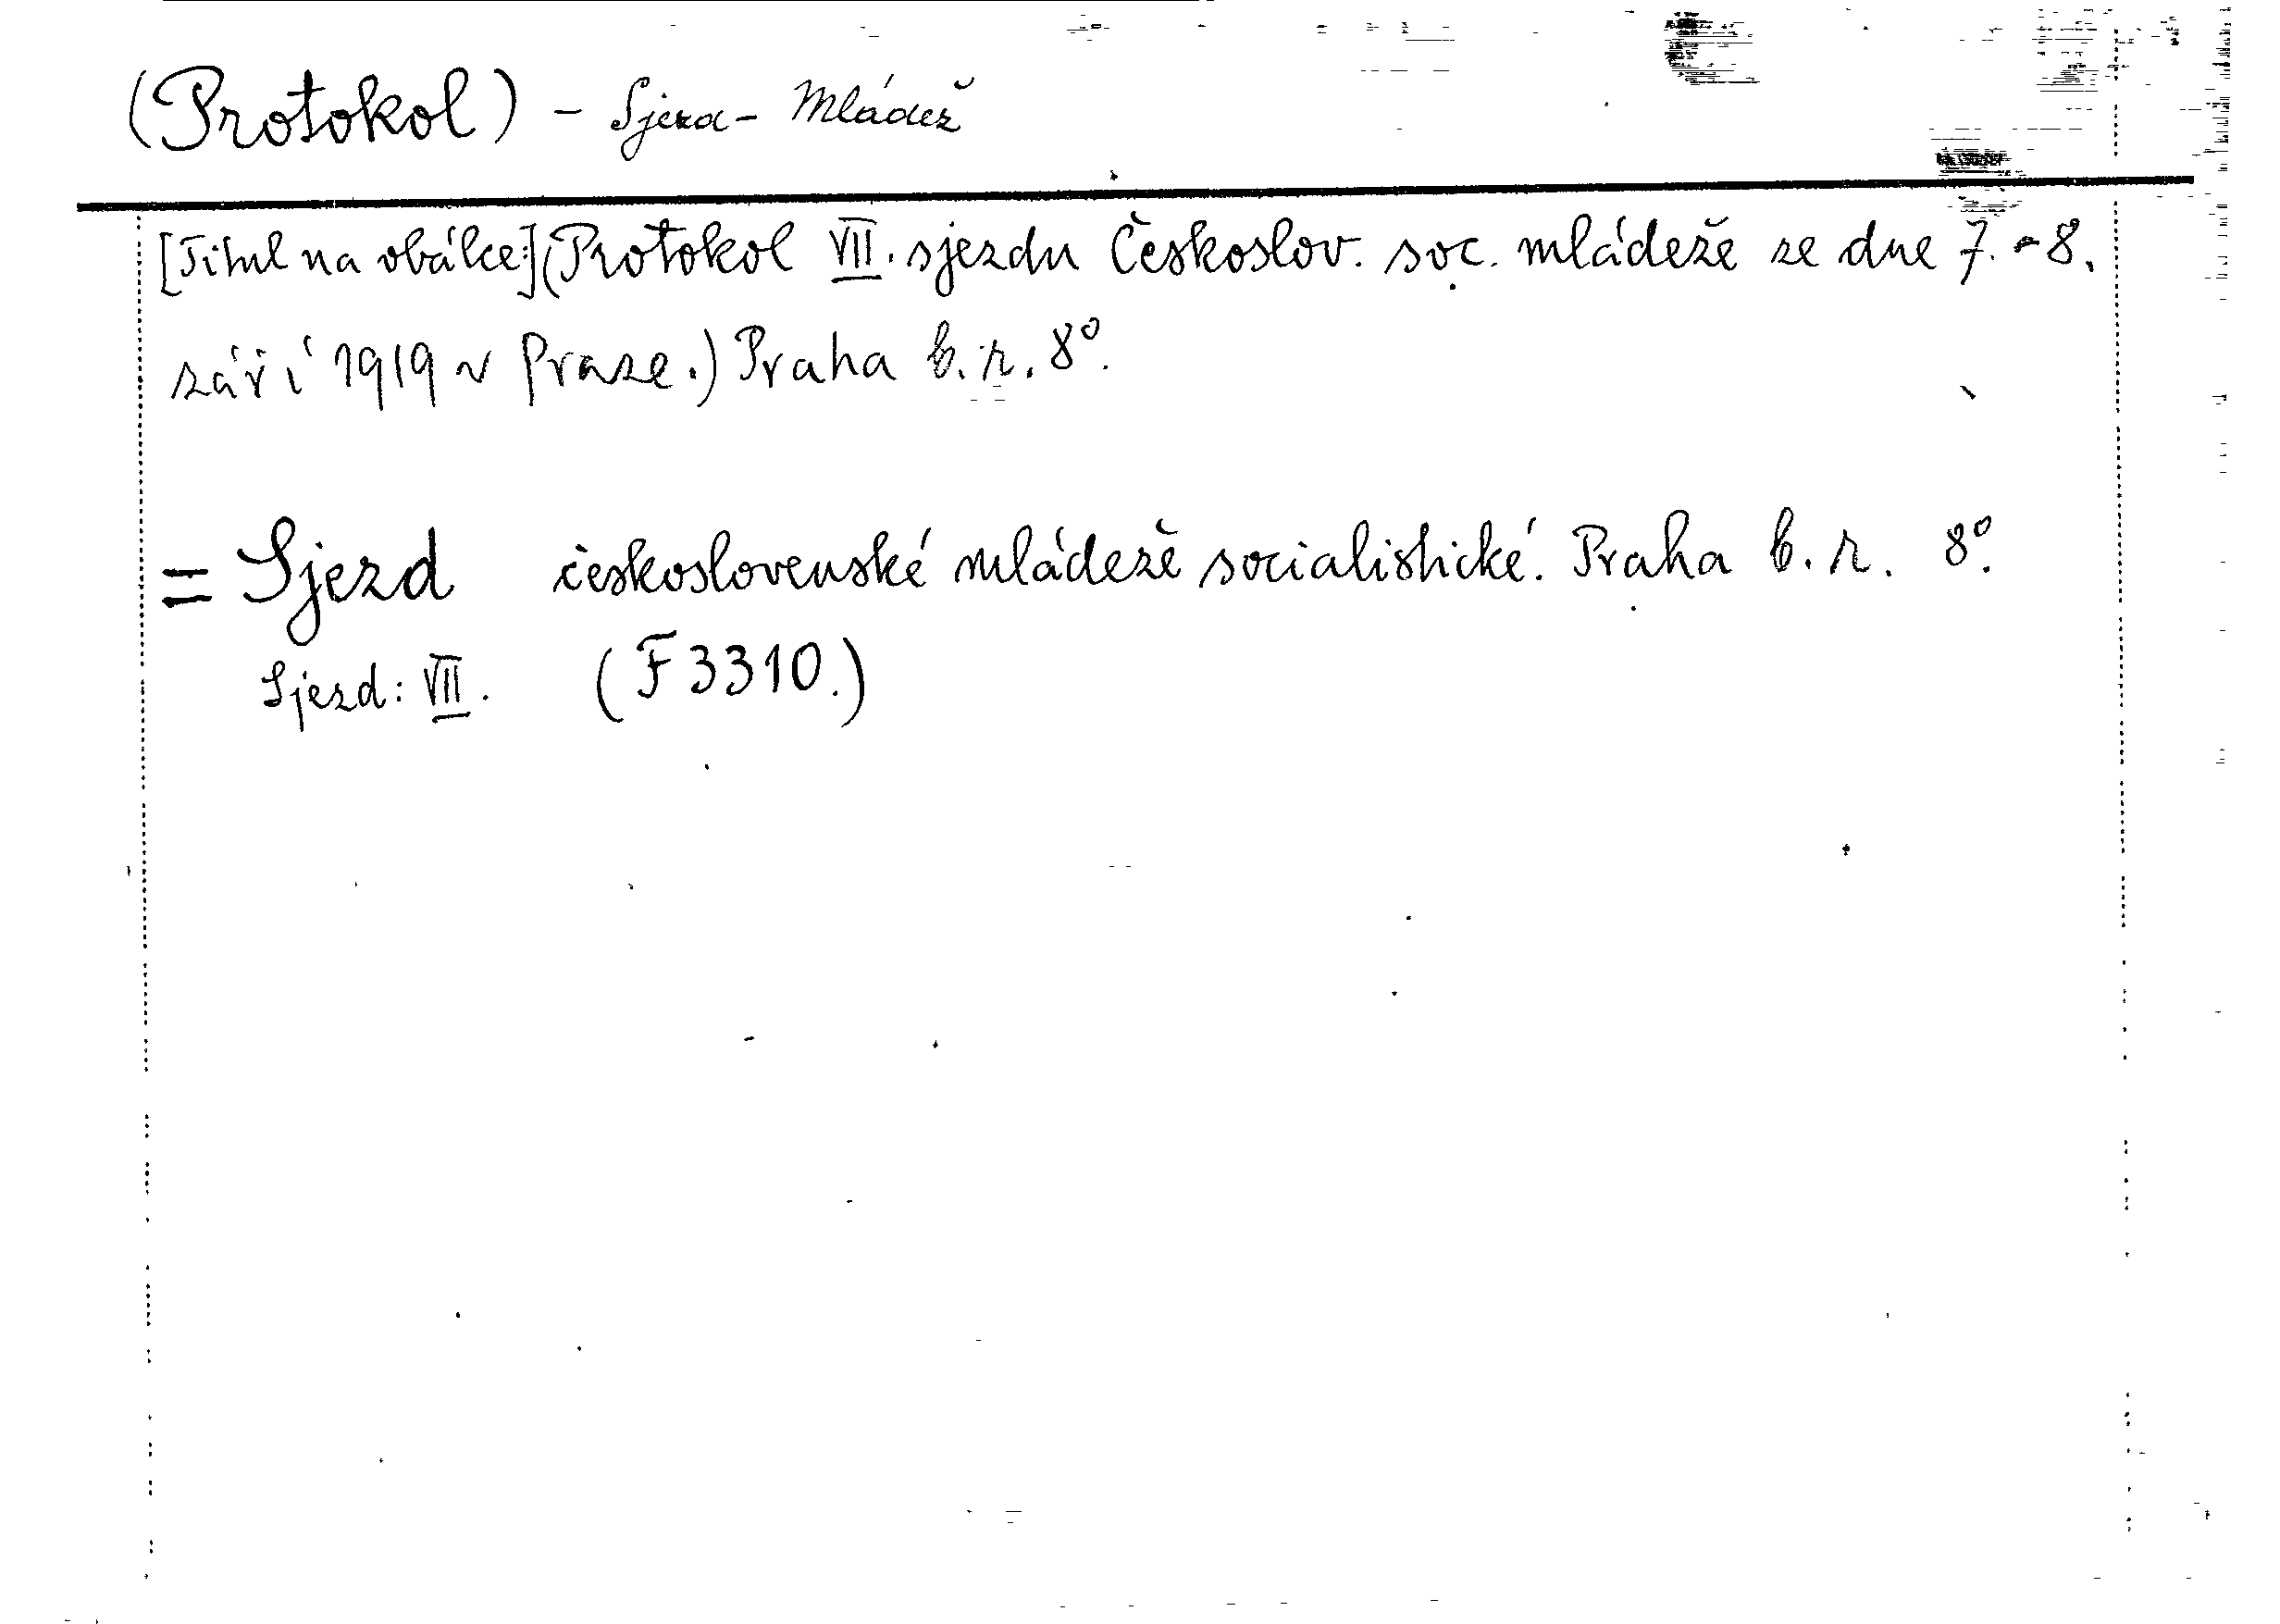 (Protokol) - Sjezd - Mládež
[Titul na obálce:] (Protokol VII. sjezdu Českoslov. soc. mládeže ze dne 7. - 8.
září 1919 v Praze.) Praha b. r. 8°.
= Sjezd československé mládeže socialistické. Praha b. r. 8°.
Sjezd: VII. (F 3310.)